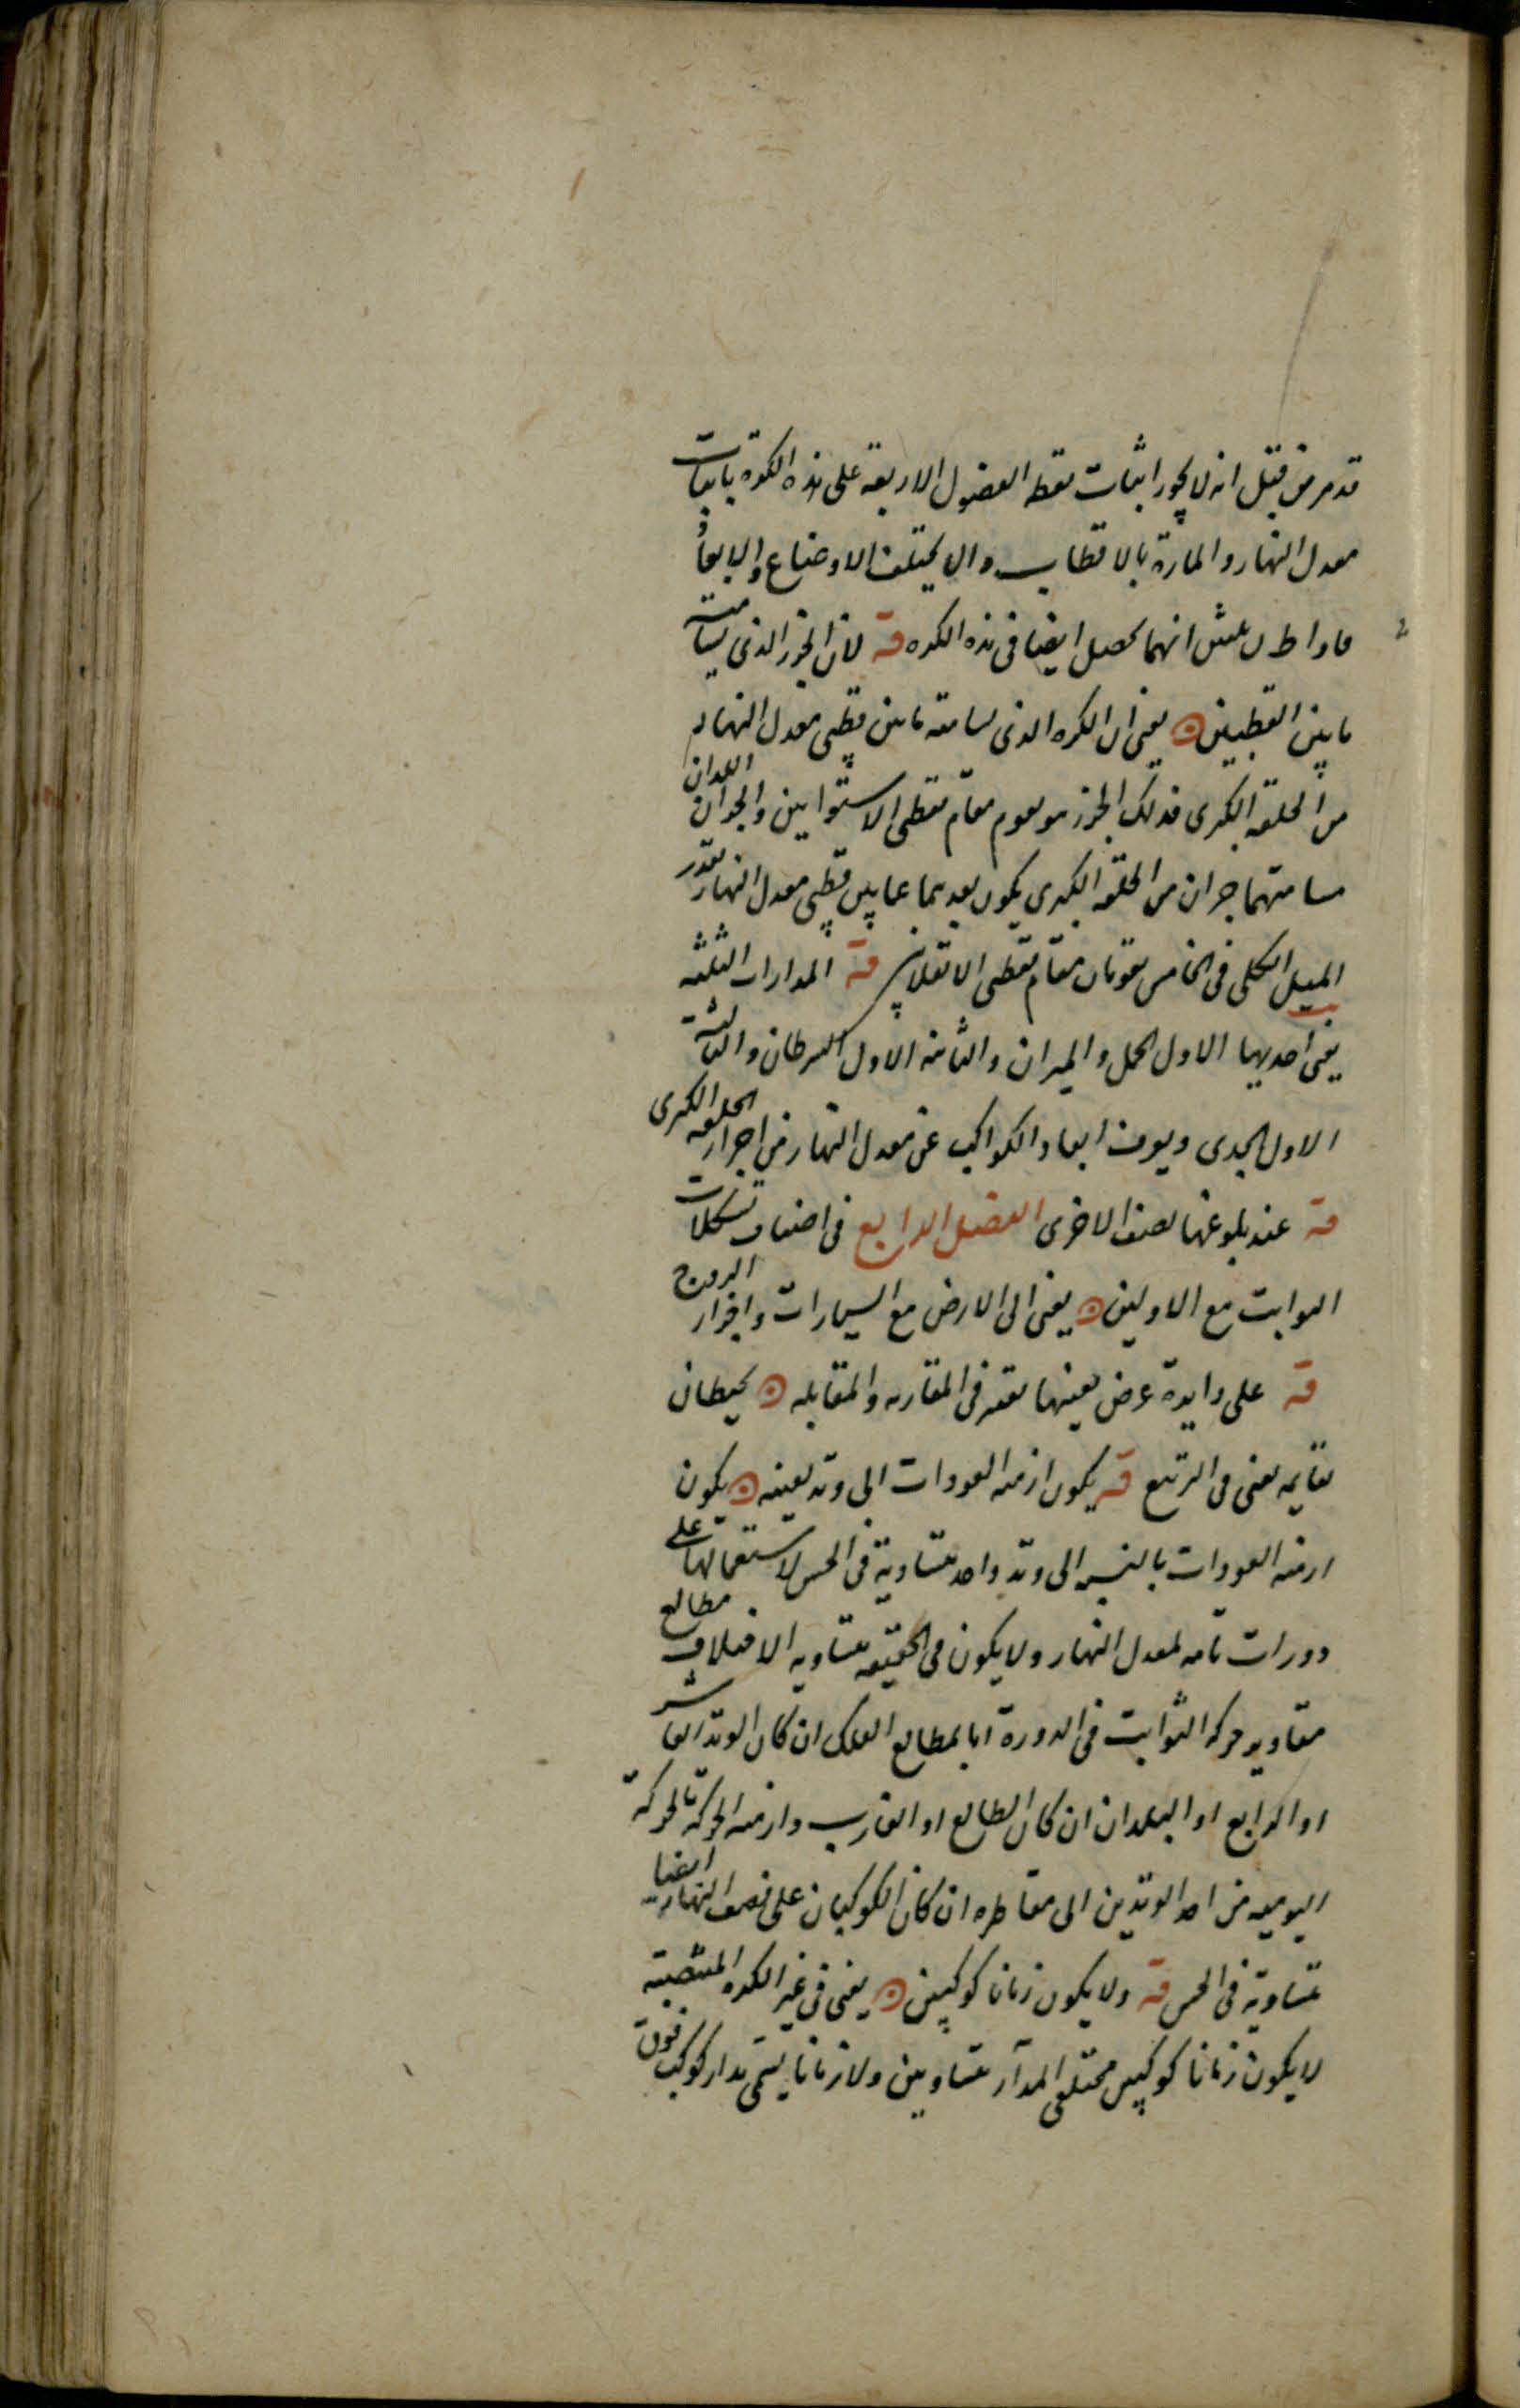 قد مر من قبل انه لا يجوز اثبات نقط الفصول الاربعة على هذه الكرة باثبات
معدل النهار والمارة بالاقطاب والا يختلف الاوضاع والابعاد
فاذا انهما يحصل ايضا فى هذه الكره قـه لان الجزء الذى يسامته
ما بين القطبين ⊙ يعنى ان الكره الذى يسامته ما بين قطبى معدل النهار
من الحلقه الكبرى فذلك الجزء هو يقوم مقام نقطتى الاستوايين والجزءان اللذان
يسامتهما جزءان من الحلقه الكبرى يكون بعدهما عما بين قطبى معدل النهار بقدر
الميل الكلى فى الخامس يقومان مقام نقطتى الانقلابين قـه المدارات الثلثه
يعنى احديها الاول الحمل والميزان والثانيه الاول السرطان والثالثة
الاول الجدى ويعرف ابعاد الكواكب عن معدل النهار من اجزاء الحلقه الكبرى
قـه عند بلوغها نصف الاخرى الفصل الرابع فى اصناف تشكلات
الثوابت مع الاولين ⊙ يعنى الى الارض مع السيارات واجزاء البروج
قـه على دايرة عرض بعينها يعنى فى المقارنه والمقابله ⊙ يحيطان
بقايمه يعنى فى التربيع قـه يكون ازمنه العودات الى وتد بعينه ⊙ يكون
ازمنه العودات بالنسبه الى وتد واحد متساوية فى الحس لاشتمالها على
دورات تامه لمعدل النهار ولا يكون فى الحقيقه متساويه لاختلاف مطالع
مقادير حركه الثوابت فى الدورة اما بمطالع الفلك ان كان الوتد العاشر
او الرابع او البلدان ان كان الطالع او الغارب وازمنه الحركة بالحركة
اليوميه من احد الوتدين الى مقاطره ان كان الكوكبان على نصف النهار ايضا
متساوية فى الحس قـه ولا يكون زمانا كوكبين ⊙ يعنى فى غير الكره المنتصبه
لا يكون زمانا كوكبين مختلفى المدار متساويين ولا زمانا يتمى مدار كوكب فوق